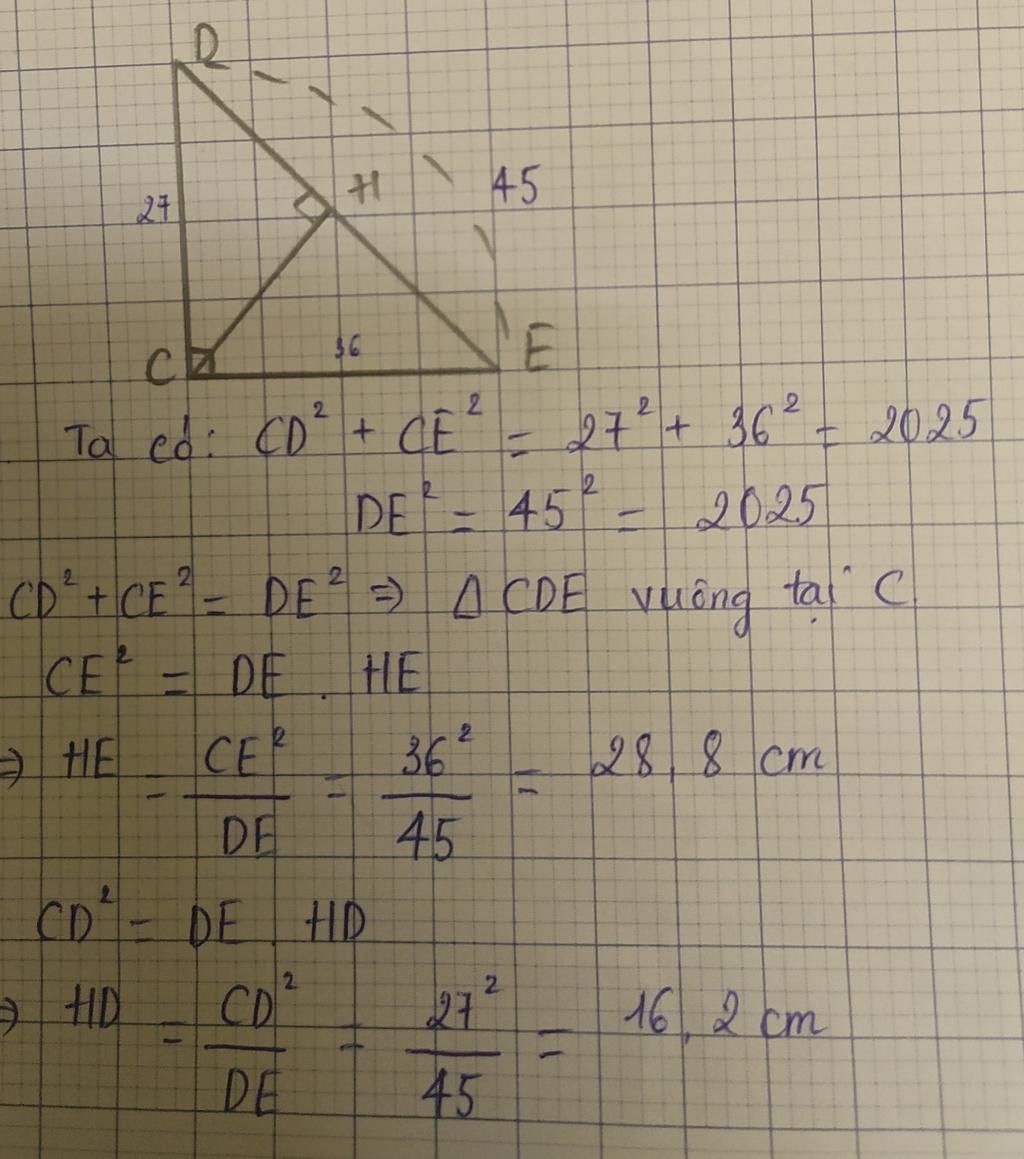 D
H
27
45
C
36
E
Ta có: CD² + CE² = 27² + 36² = 2025
DE² = 45² = 2025
CD² + CE² = DE² ⇒ Δ CDE vuông tại C
CE² = DE . HE
⇒ HE = CE²/DE = 36²/45 = 28,8 cm
CD² = DE . HD
⇒ HD = CD²/DE = 27²/45 = 16,2 cm